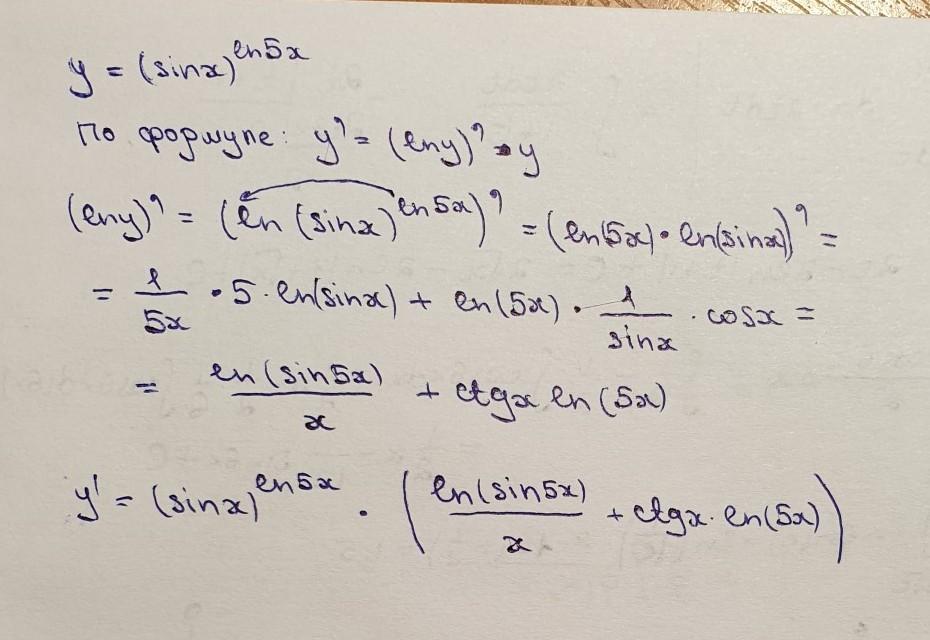 y = (sinx)^ln5x
По формуле: y' = (lny)' · y
(lny)' = (ln (sinx)^ln5x)' = (ln(5x) · ln(sinx))' =
= 1/5x · 5 · ln(sinx) + ln(5x) · 1/sinx · cosx =
= ln(sin5x)/x + ctgx ln(5x)
y' = (sinx)^ln5x · (ln(sin5x)/x + ctgx · ln(5x))